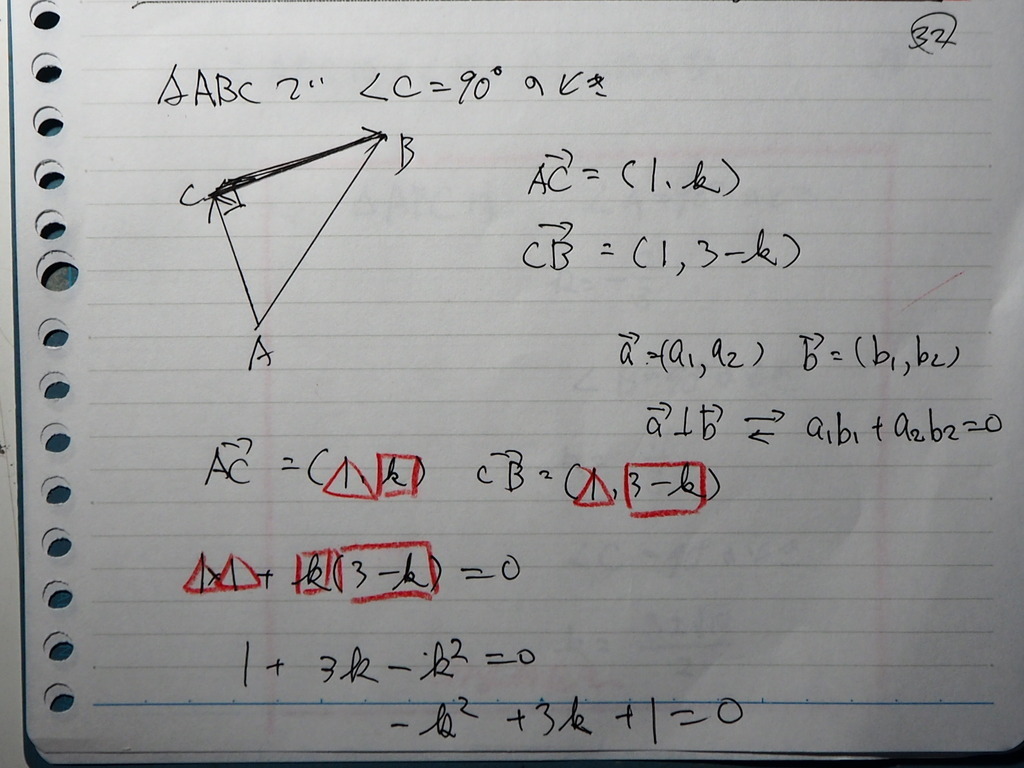 32
△ABCで ∠C=90°のとき
B
C
A
AC→ = (1, k)
CB→ = (1, 3-k)
a→=(a₁, a₂) b→=(b₁, b₂)
a→⊥b→ ⇄ a₁b₁+a₂b₂=0
AC→ =(1, k) CB→=(1, 3-k)
1×1+ k(3-k) =0
1+ 3k-k²=0
-k²+3k+1=0